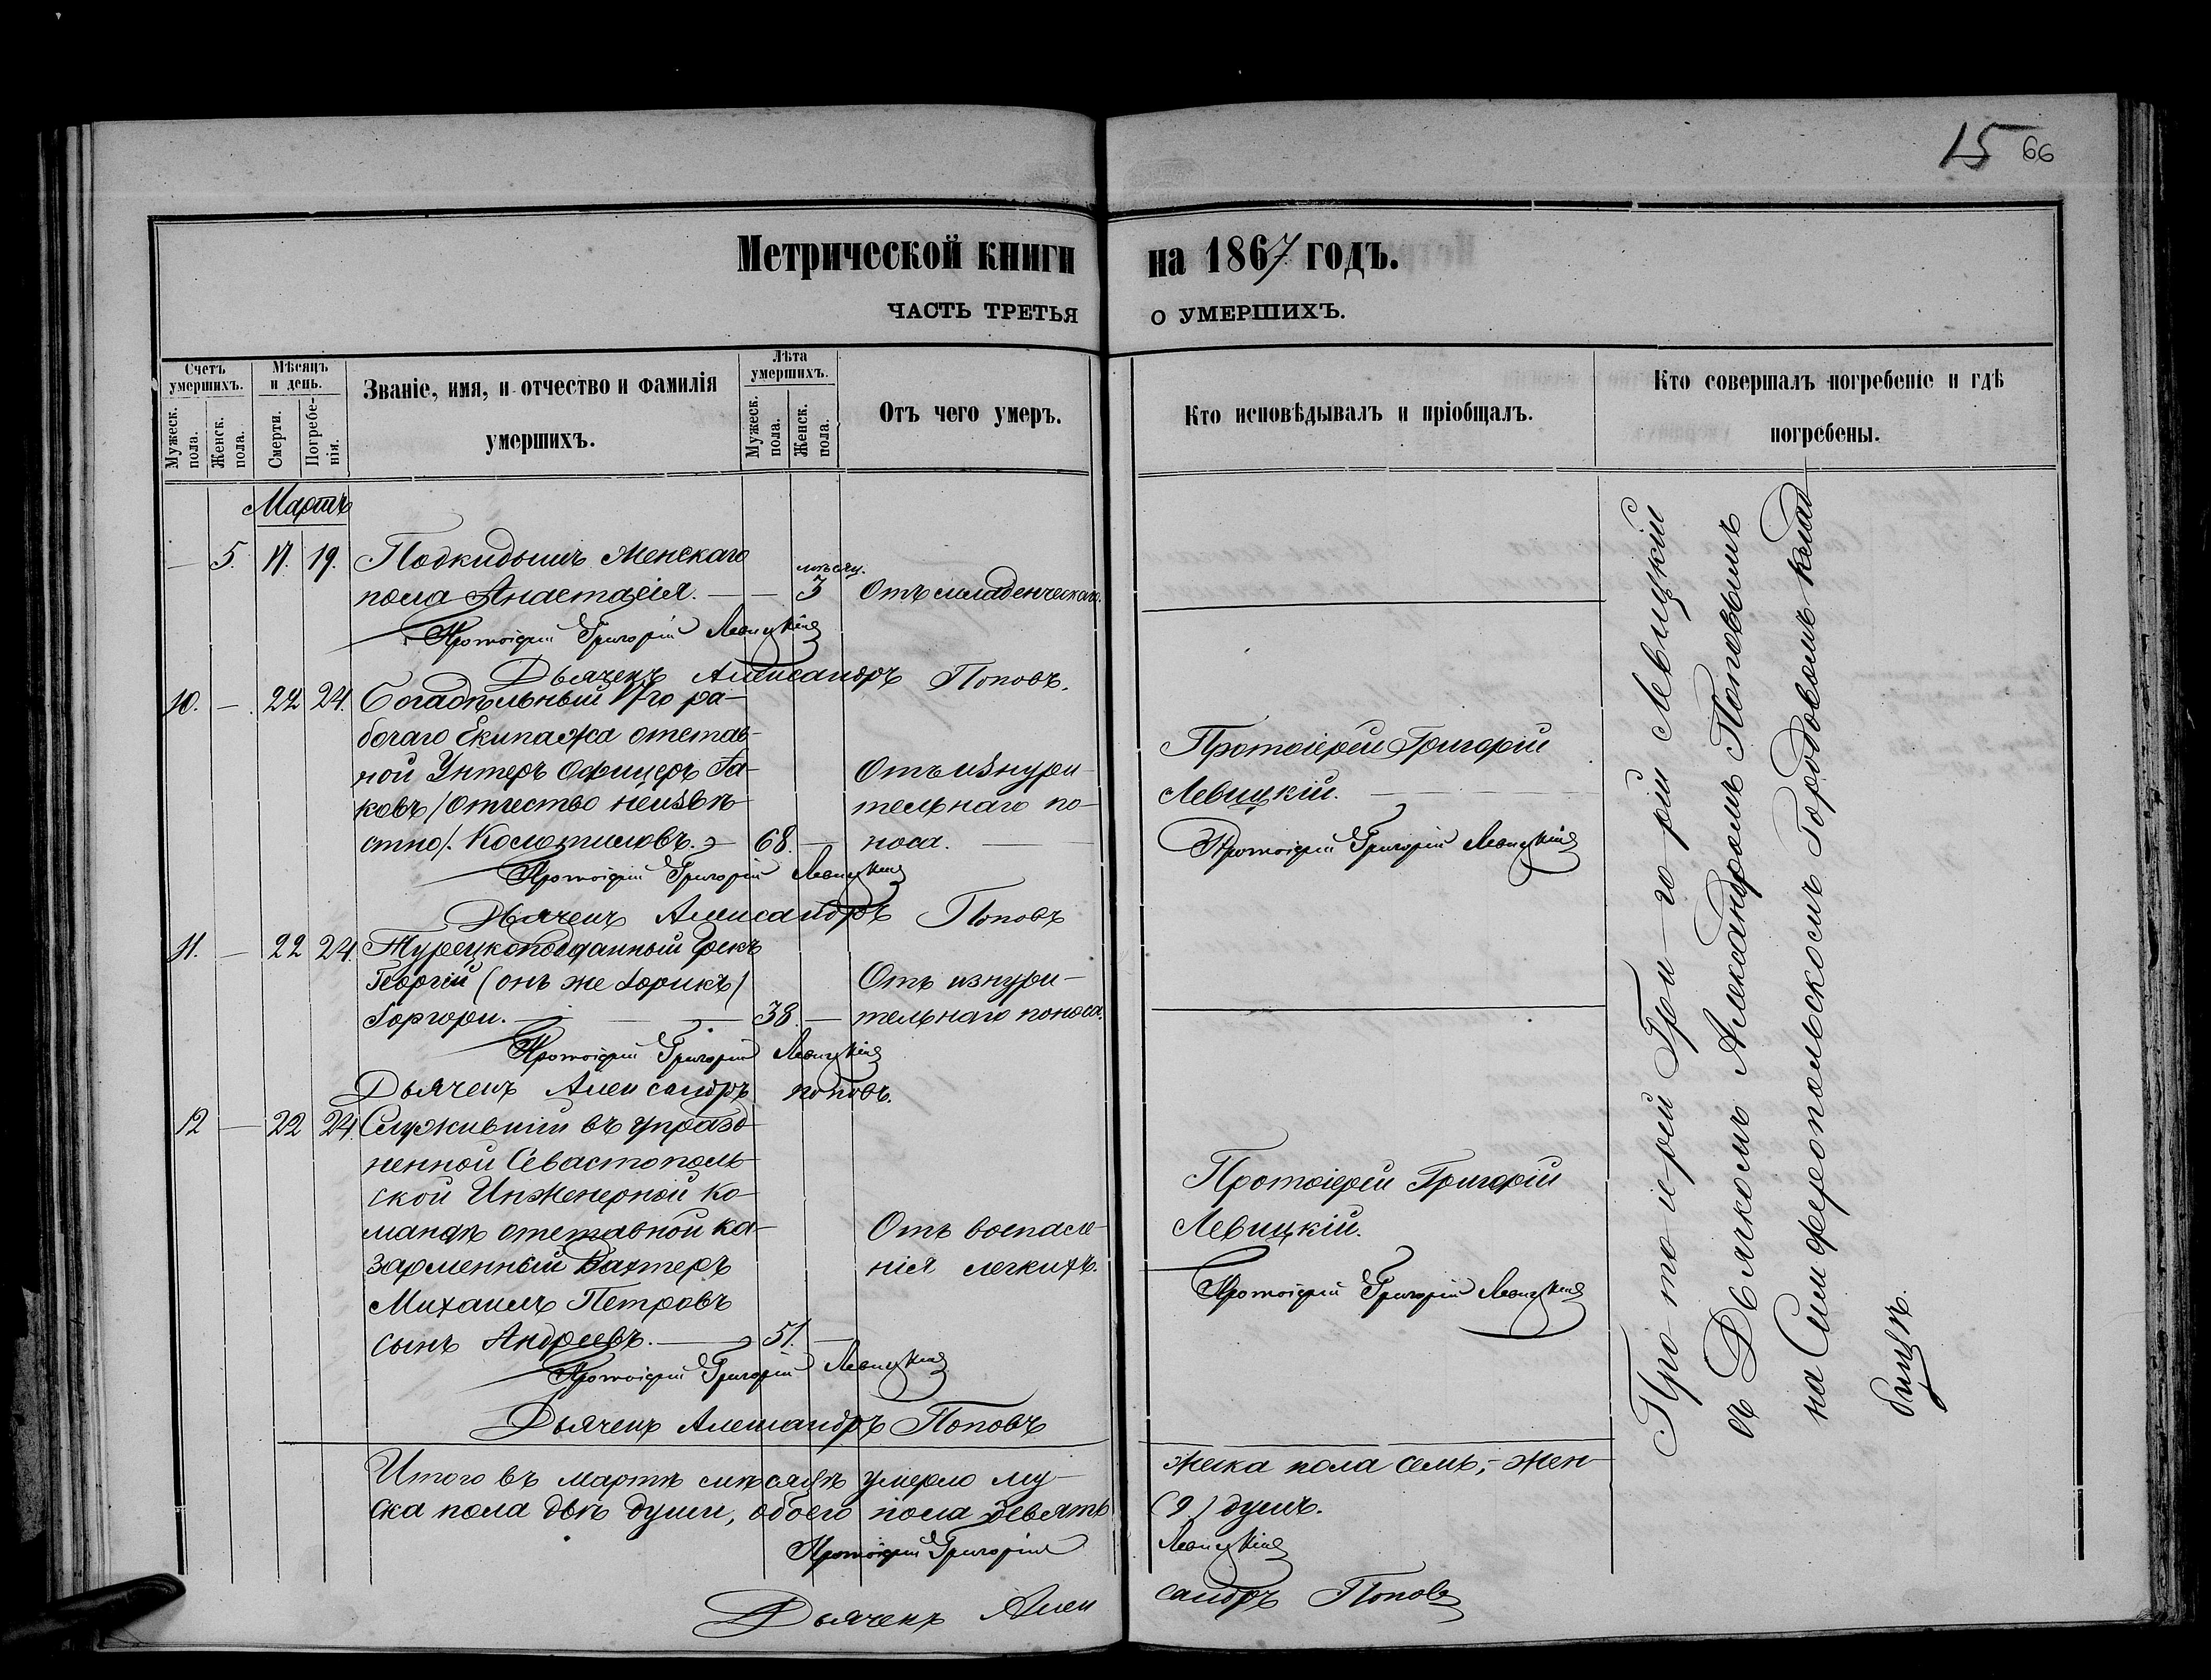 15 66
Метрической книги на 1867 годъ.
ЧАСТЬ ТРЕТЬЯ О УМЕРШИХЪ.
Счетъ умершихъ.
Мужеск. пола.
Женск. пола.
Мѣсяцъ и день.
Смерти.
Погребе-
нія.
Званіе, имя, и отчество и фамилія
умершихъ.
Лѣта умершихъ.
Мужеск. пола.
Женск. пола.
Отъ чего умеръ.
Кто исповѣдывалъ и пріобщалъ.
Кто совершалъ погребеніе и гдѣ
погребены.
Мартъ
— 5. 17. 19. Подкидышъ Женскаго
пола Анастасія. — — мѣсяц. 3 Отъ младенческой.
Протоіерей Григорій Левицкій
Дьячекъ Александръ Поповъ.
10. — 22 24. Богадѣльный 17го ра-
бочаго Екипажа отстав-
ной Унтеръ Офицеръ Я-
ковъ /Отчество неизвѣ-
стно/. Колотиловъ. — 68. —
Отъ изнури-
тельнаго по-
носа.
Протоіерей Григорій
Левицкій.
Протоіерей Григорій Левицкій
Протоіерей Григорій Левицкій
Дьячекъ Александръ Поповъ
11. — 22 24. Турецкоподданный Грекъ
Георгій (онъ же Йорикъ)
Горгори. — 38. —
Отъ изнури-
тельнаго поноса.
Протоіерей Григорій Левицкій
Дьячекъ Александръ Поповъ.
12 — 22 24. Служившій въ упразд-
ненной Севастополь-
ской Инженерной Ко-
мандѣ отставной ка-
зарменный Вахтеръ
Михаилъ Петровъ
сынъ Андреевъ. — 51. —
Отъ воспале-
нія легкихъ.
Протоіерей Григорій
Левицкій.
Протоіерей Григорій Левицкій
Протоіерей Григорій Левицкій
Дьячекъ Александръ Поповъ
Итого въ мартѣ мѣсяцѣ умерло му-
жска пола семь, - жен-
ска пола двѣ души, обоего пола девять
(9) душъ.
Протоіерей Григорій Левицкій
Дьячекъ Александръ Поповъ
Протоіерей Григорій Левицкій
съ Дьячкомъ Александромъ Поповымъ
на Симферопольскомъ Городовомъ клад-
бищѣ.